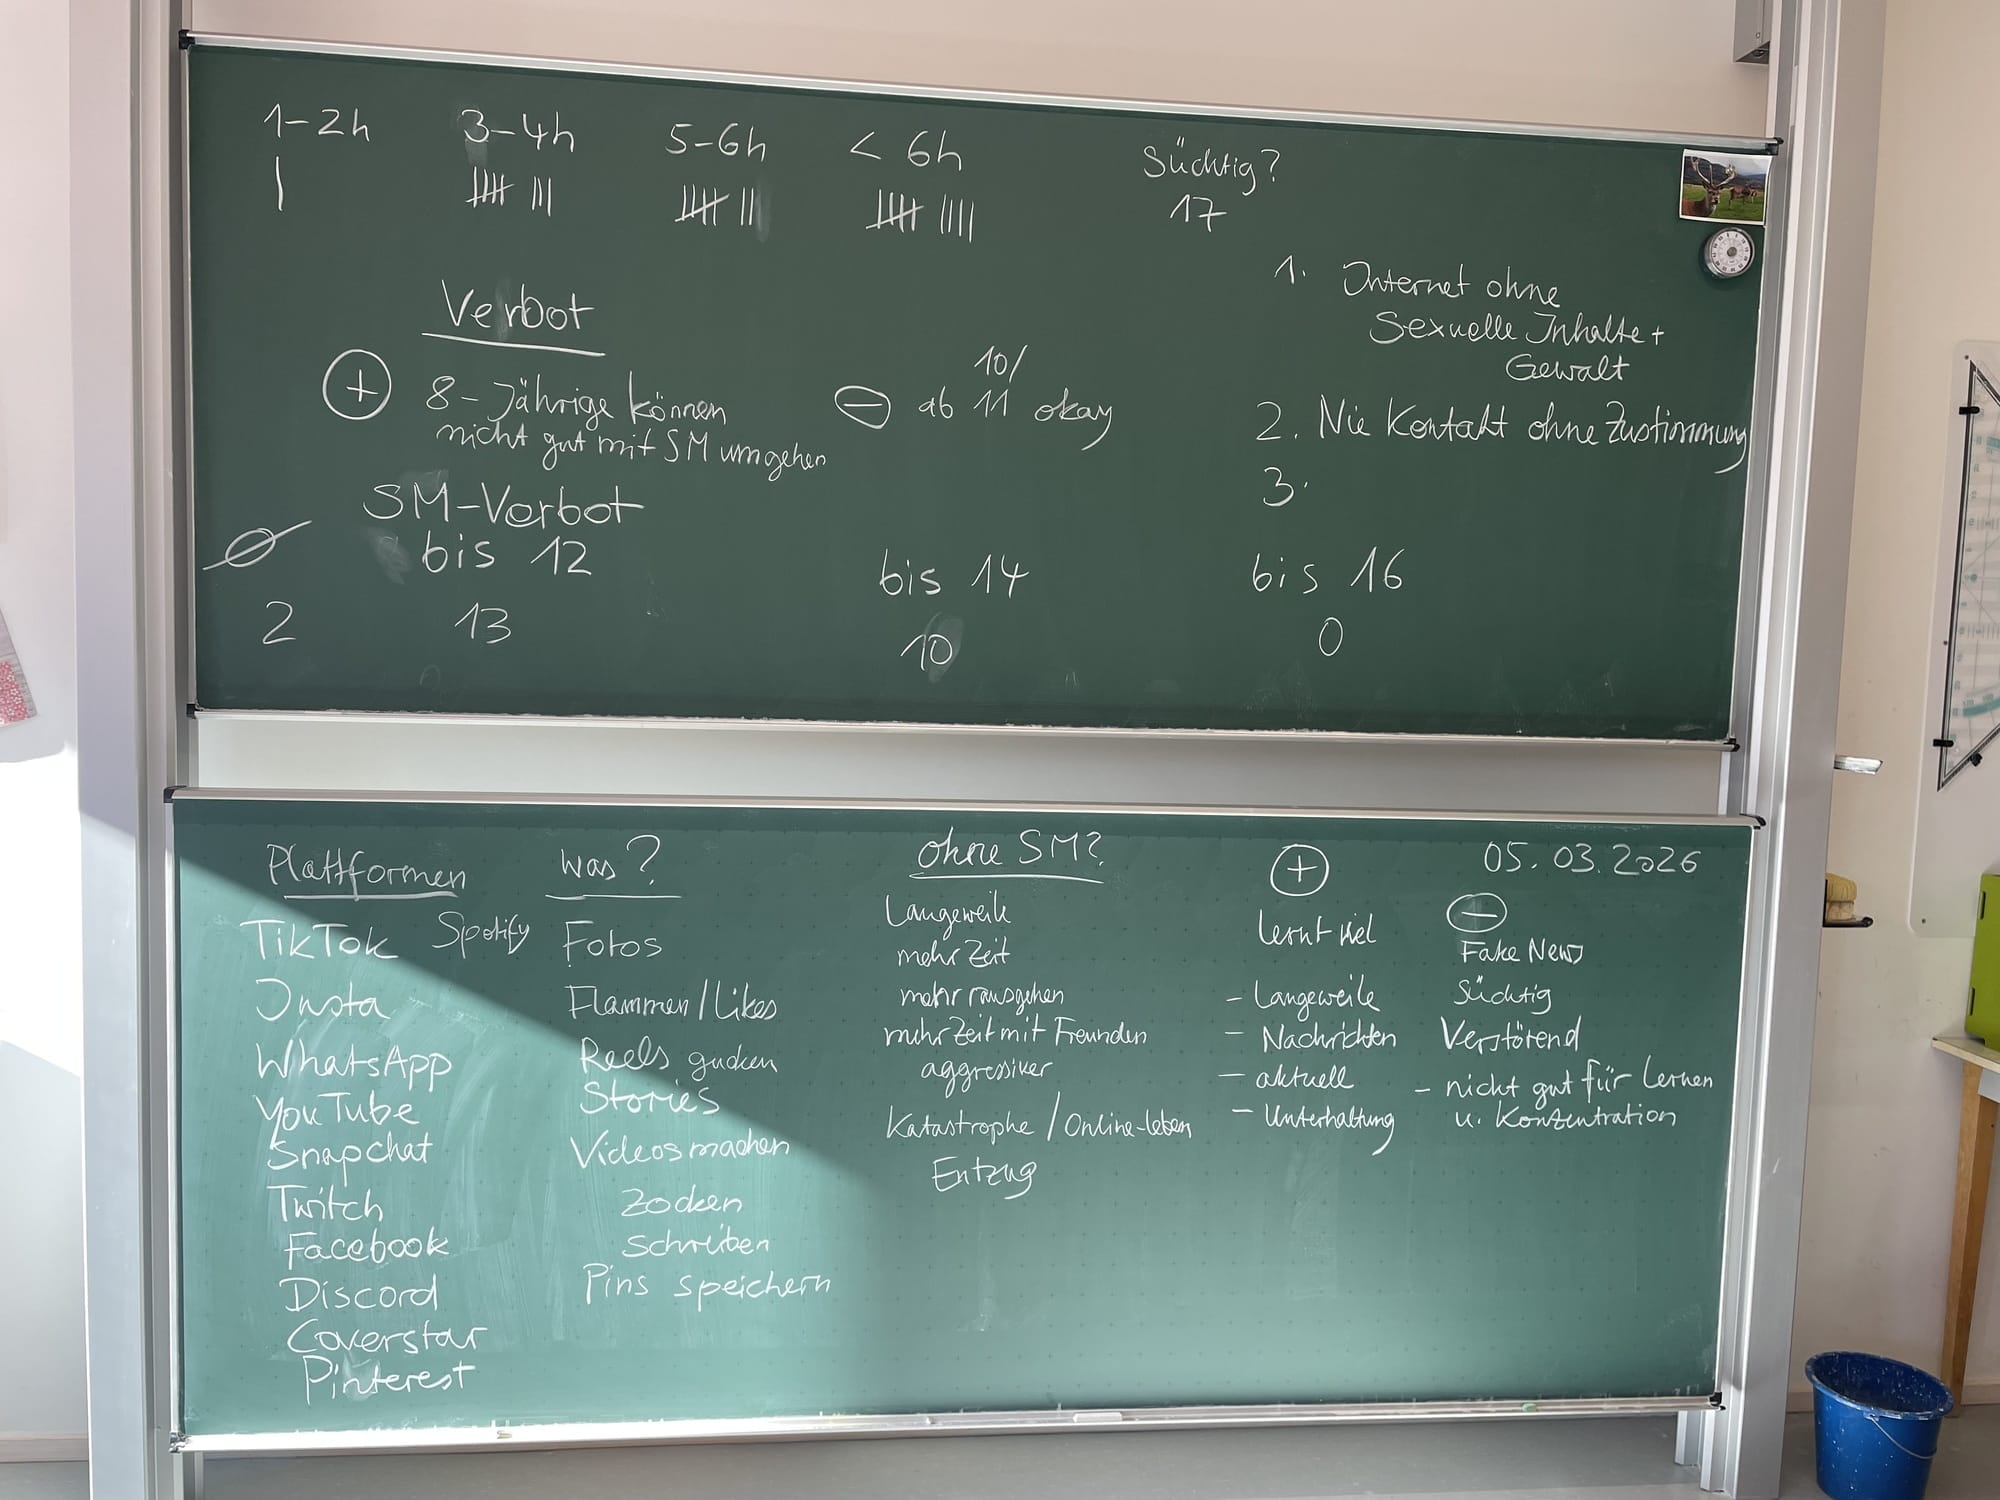 1-2h 3-4h 5-6h < 6h Süchtig?
17
1. Internet ohne
Sexuelle Inhalte +
Gewalt
2. Nie Kontakt ohne Zustimmung
3.
Verbot
+ 8-Jährige können
nicht gut mit SM umgehen
- 10/
ab 11 okay
SM-Verbot
Ø bis 12 bis 14 bis 16
2 13 10 0
05.03.2026
Plattformen
TikTok Spotify
Insta
WhatsApp
YouTube
Snapchat
Twitch
Facebook
Discord
Coverstar
Pinterest
was?
Fotos
Flammen/Likes
Reels gucken
Stories
Videos machen
Zocken
schreiben
Pins speichern
ohne SM?
Langeweile
mehr Zeit
mehr rausgehen
mehr Zeit mit Freunden
aggressiver
Katastrophe / Online-leben
Entzug
+
lernt viel
- Langeweile
- Nachrichten
- aktuell
- Unterhaltung
-
Fake News
Süchtig
Verstörend
- nicht gut für Lernen
u. Konzentration